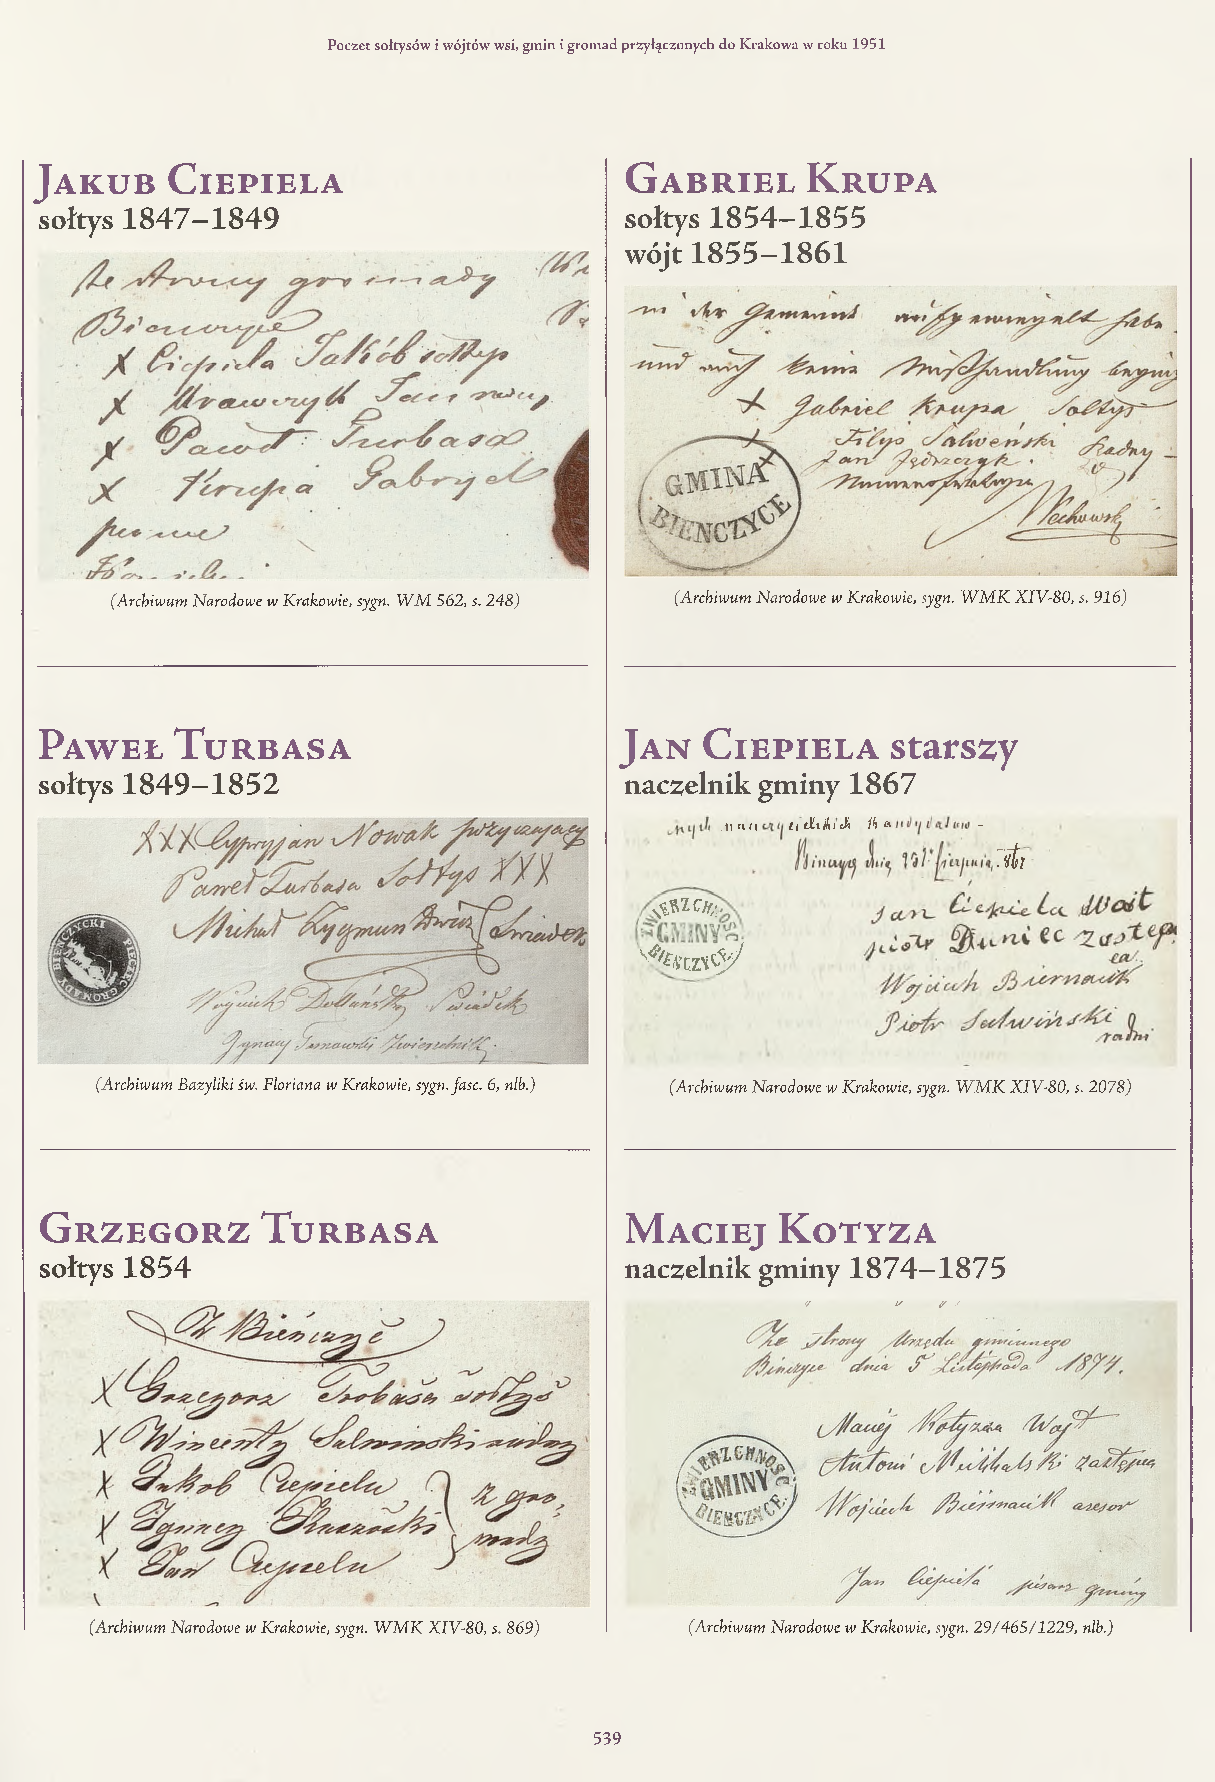 Poczet sołtysów i wójtów wsi, gmin i gromad przyłączonych do Krakowa w roku 1951
Jakub Ciepiela
sołtys 1847–1849
ze strony gromady
X Ciepiela Jakób sołtys
X Pawoł Turbasa
X Krupa Gabryel
(Archiwum Narodowe w Krakowie, sygn. WM 562, s. 248)
Paweł Turbasa
sołtys 1849–1852
XXX Cypryjan Nowak przysiężny
Paweł Turbasa Sołtys XXX
Michał Zygmuntowicz Świadek
BIEŃCZYCKI PIECZĘC GROMADY
Świadek
Ignacy Tarnawski Zwierzchnik
(Archiwum Bazyliki św. Floriana w Krakowie, sygn. fasc. 6, nlb.)
Grzegorz Turbasa
sołtys 1854
Z Bieńczyc
X Grzegorz Trobasa sołtys
X Wincenty Salwinski radny
X Jakob Ciepiela
X Ignacy
X Jan Ciepiela
z gro,
mady
(Archiwum Narodowe w Krakowie, sygn. WMK XIV-80, s. 869)
Gabriel Krupa
sołtys 1854–1855
wójt 1855–1861
in der Gemeinde aufgewiegelt habe
und auch keine Mißhandlung
X Gabriel Krupa Soltys
Filip Salweński Radny
Jan Jędrzczyk
GMINA
BIENCZYCE
(Archiwum Narodowe w Krakowie, sygn. WMK XIV-80, s. 916)
Jan Ciepiela starszy
naczelnik gminy 1867
nych nauczycielskich kandydatow -
Jan Ciepiela Wojt
piotr Duniec zastęp
ca
Wojciech Biernacik
Piotr Salwiński
radni
ZWIERZCHNOŚĆ
GMINY
BIENCZYCE
(Archiwum Narodowe w Krakowie, sygn. WMK XIV-80, s. 2078)
Maciej Kotyza
naczelnik gminy 1874–1875
Ze strony Urzędu gminnego
Binczyce dnia 5 Listopada 1874.
Maciej Kotyza Wojt
Antoni Michalski zastępca
Wojciech Biernacik asesor
ZWIERZCHNOŚĆ
GMINY
BIENCZYCE
Jan Ciepiela pisarz gminy
(Archiwum Narodowe w Krakowie, sygn. 29/465/1229, nlb.)
539